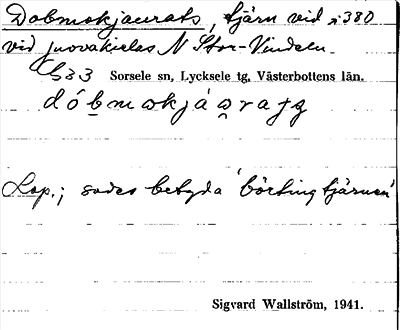 Dobmokjaurats, tjärn vid ⊼380
vid Juovakieles N Stor-Vindeln.
Sorsele sn, Lycksele tg, Västerbottens län.
Lap.; sades betyda 'börting tjärnen'
Sigvard Wallström, 1941.